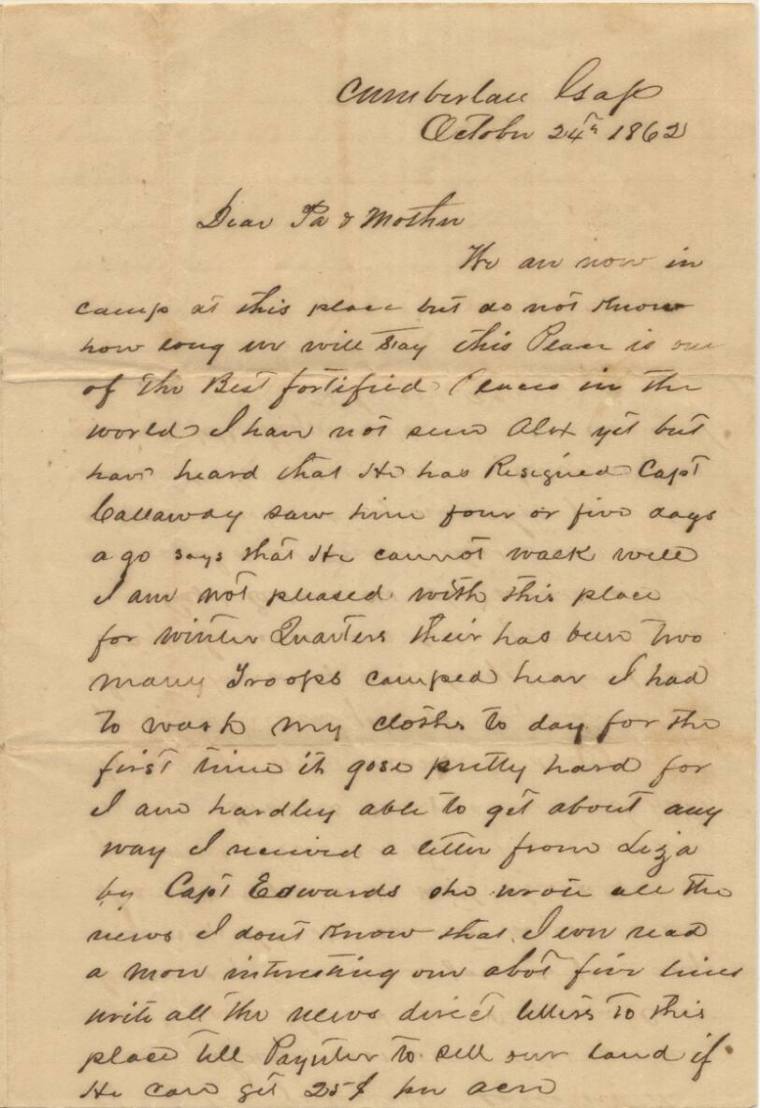 Cumberlan Gap
October 24th 1862
Dear Pa & Mother
We are now in
camp at this place but do not know
how long we will stay this Place is one
of the Best fortified Places in the
world I have not seen Alex yet but
have heard that He has Resigned Capt
Callaway saw him four or five days
a go says that He cannot walk well
I am not pleased with this place
for winter Quarters their has been two
many Troops camped hear I had
to wash my clothes to day for the
first time it gose pretty hard for
I am hardley able to get about any
way I received a letter from Liza
by Capt Edwards she wrote all the
news I dont know that I ever read
a more interesting one abot five lines
write all the news direct letters to this
place tell Paynter to sell our land if
He can get 25$ per acre